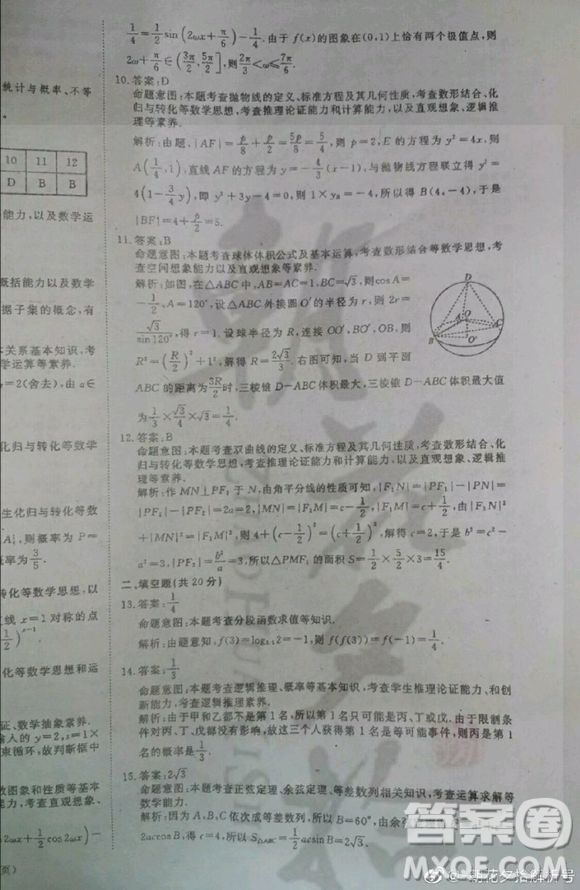 统计与概率、不等
10 11 12
D B B
能力,以及数学运
概括能力以及数学
据子集的概念,有
关系基本知识,考
学运算等素养.
=2(舍去),由a∈
化归与转化等数学
生化归与转化等数
则概率为P=
3/5.
转化等数学思想,以
线x=1对称的点
化等数学思想和运
证、数学抽象素养.
输入的y=2,则
束循环,故判断框中
数图象和性质等基本
数学思想,以及数学
页)
1/4=1/2sin(2ωx+π/6)-1/4.由于f(x)的图象在(0,1)上恰有两个极值点,则
2ω+π/6∈(3π/2,5π/2],则2π/3<ω≤7π/6.
10.答案:D
命题意图:本题考查抛物线的定义、标准方程及其几何性质,考查数形结合、化
归与转化等思想,考查推理论证能力和计算能力,以及直观想象、逻辑推
理等素养.
解析:由题,|AF|=p/8+p/2=5p/8=5/4,则p=2,E的方程为y²=4x,则
A(1/4,1),直线AF的方程为y=-4/3(x-1),与抛物线方程联立得y²=
4(1-3/4y),即y²+3y-4=0,则1×y_B=-4,所以得B(4,-4),于是
|BF|=4+p/2=5.
11.答案:B
命题意图:本题考查球体体积公式及基本运算,考查数形结合等数学思想,考
查空间想象能力以及直观想象等素养.
解析:如图,在△ABC中,AB=AC=1,BC=√3,则cosA=
-1/2,A=120°,设△ABC外接圆的O′的半径为r,则2r=
√3/sin120°,得r=1,设球半径为R,连接OO′,BO′,BO,则
R²=(R/2)²+1²,解得R=2√3/3.右图可知,当D到平面
ABC的距离为3R/2时,三棱锥D-ABC体积最大,三棱锥D-ABC体积最大值
为1/3×√3/4×√3=1/4.
12.答案:B
命题意图:本题考查双曲线的定义、标准方程及其几何性质,考查数形结合、化
归与转化等思想,考查推理论证能力和计算能力,以及直观想象、逻辑推
理等素养.
解析:作MN⊥PF₁于N,由角平分线的性质可知,|F₁N|=|PF₁|-|PN|=
|PF₁|-|PF₂|=2a=2,|MN|=|F₂M|=c-1/2,|F₁M|=c+1/2,由|F₁N|²
+|MN|²=|F₁M|²,则4+(c-1/2)²=(c+1/2)²,解得c=2,于是b²=c²-
a²=3,|PF₂|=b²/a=3,所以△PMF₁的面积S=1/2×5/2×3=15/4.
二、填空题(共20分)
13.答案:1/4
命题意图:本题考查分段函数求值等知识.
解析:由题意知,f(3)=log₀.₅2=-1,则f(f(3))=f(-1)=1/4.
14.答案:1/3
命题意图:本题考查逻辑推理、概率等基本知识,考查学生推理论证能力,和创
新能力,以及数学建模、逻辑推理等素养.
解析:由于甲和乙都不是第1名,所以第1名只可能是丙、丁或戊.由于限制条
件对丙、丁、戊都没有影响,故这三个人获得第1名是等可能事件,则丙是第1
名的概率是1/3.
15.答案:2√3
命题意图:本题考查正弦定理、余弦定理、等差数列相关知识,考查运算求解等
数学能力.
解析:因为A,B,C依次成等差数列,所以B=60°,由余
2accosB,得c=4,所以S△ABC=1/2acsinB=2√3.
D
A
O
C
B
O′
答案圈
MXQE.COM